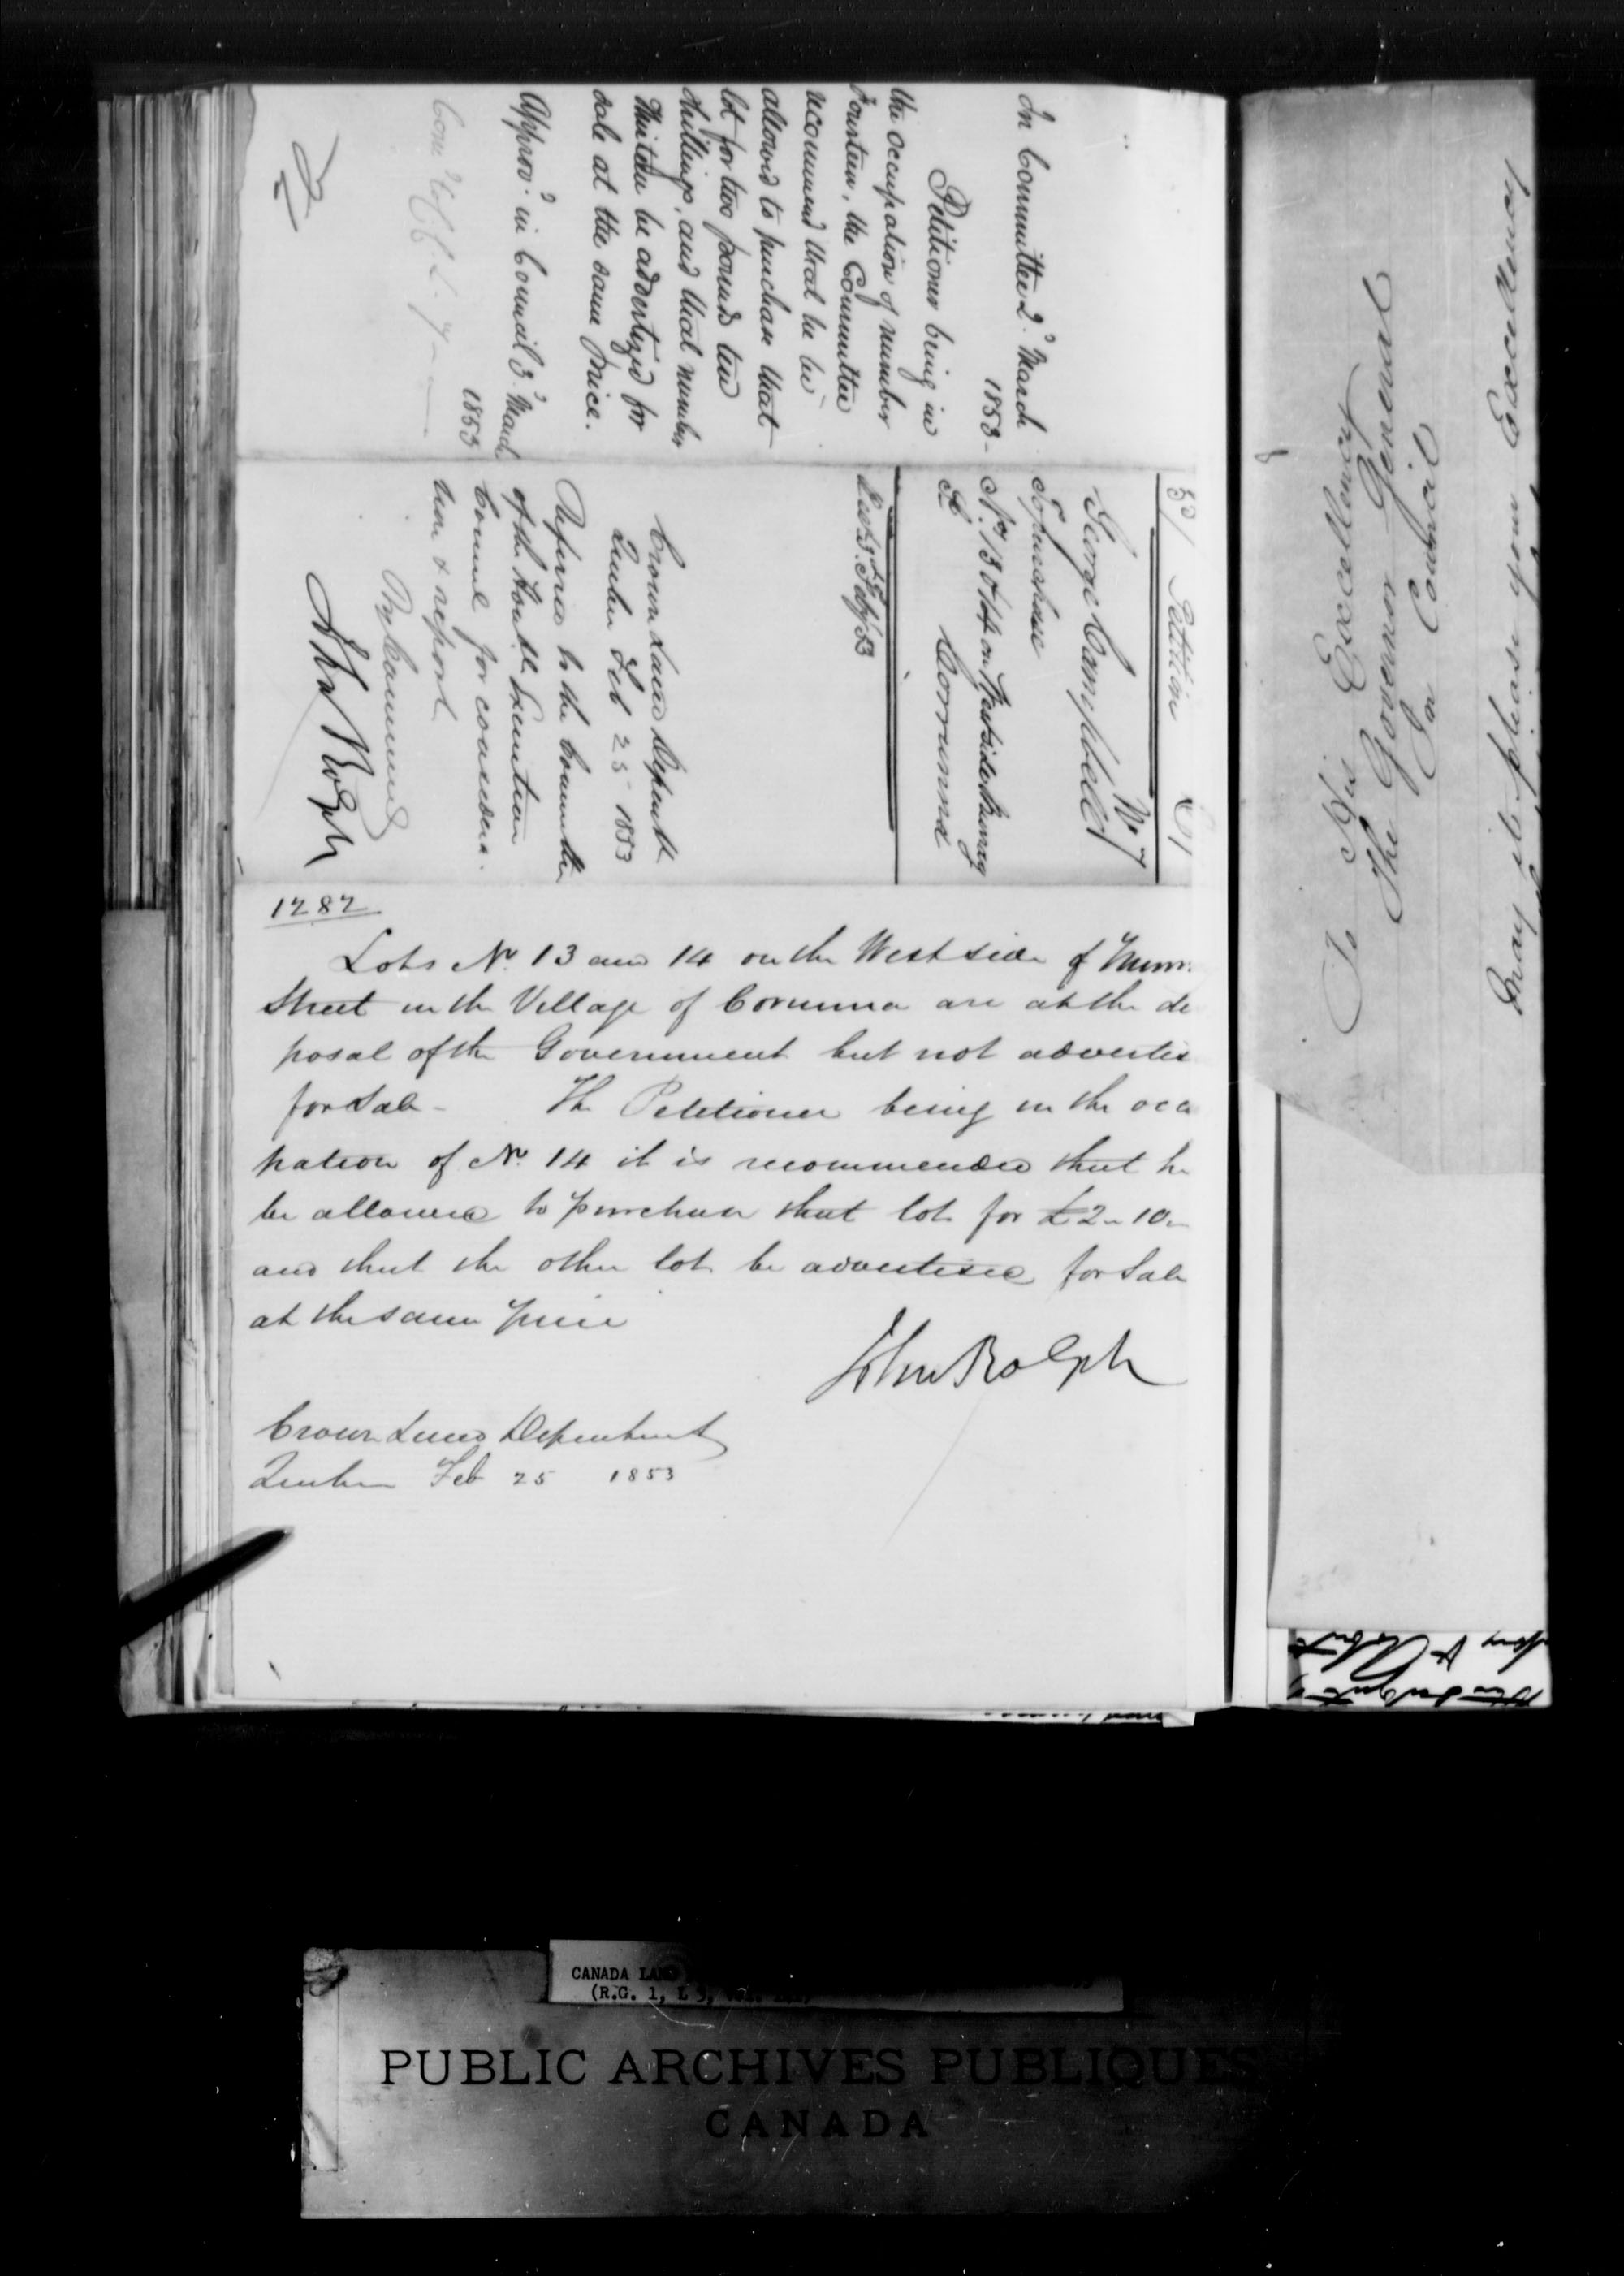 In Committee 2d March
1853 -
Petitioner being in
the occupation of number
Fourteen, the Committee
recommend that he be
allowed to purchase that
lot for two pounds ten
shillings, and that number
thirteen be advertized for
sale at the same price.
Approv.d in Council 3.d March
1853
53/ Petition
No 7
George Campbell
To purchase
Nos 13 & 14 on West side Murray
St. Corrunna
Crown Lands Departt
Quebec Feb 25 1853
Referred to the Committee
of the Honble Executive
Council for considera-
tion & report
By Command
John Rolph
1282
Lots No. 13 and 14 on the West side of Murr
Street in the Village of Corunna are at the dis
posal of the Government but not advertis
for Sale - The Petitioner being in the occu
pation of No. 14 it is recommended that he
be allowed to purchase that lot for £2 " 10 "
and that the other lot be advertised for Sale
at the same price
John Rolph
Crown Lands Department
Quebec Feb 25 1853
To His Excellency
The Governor General
In Council
May it please your Excellency
CANADA LAND
(R.G. 1, L 3,
PUBLIC ARCHIVES PUBLIQUES
CANADA